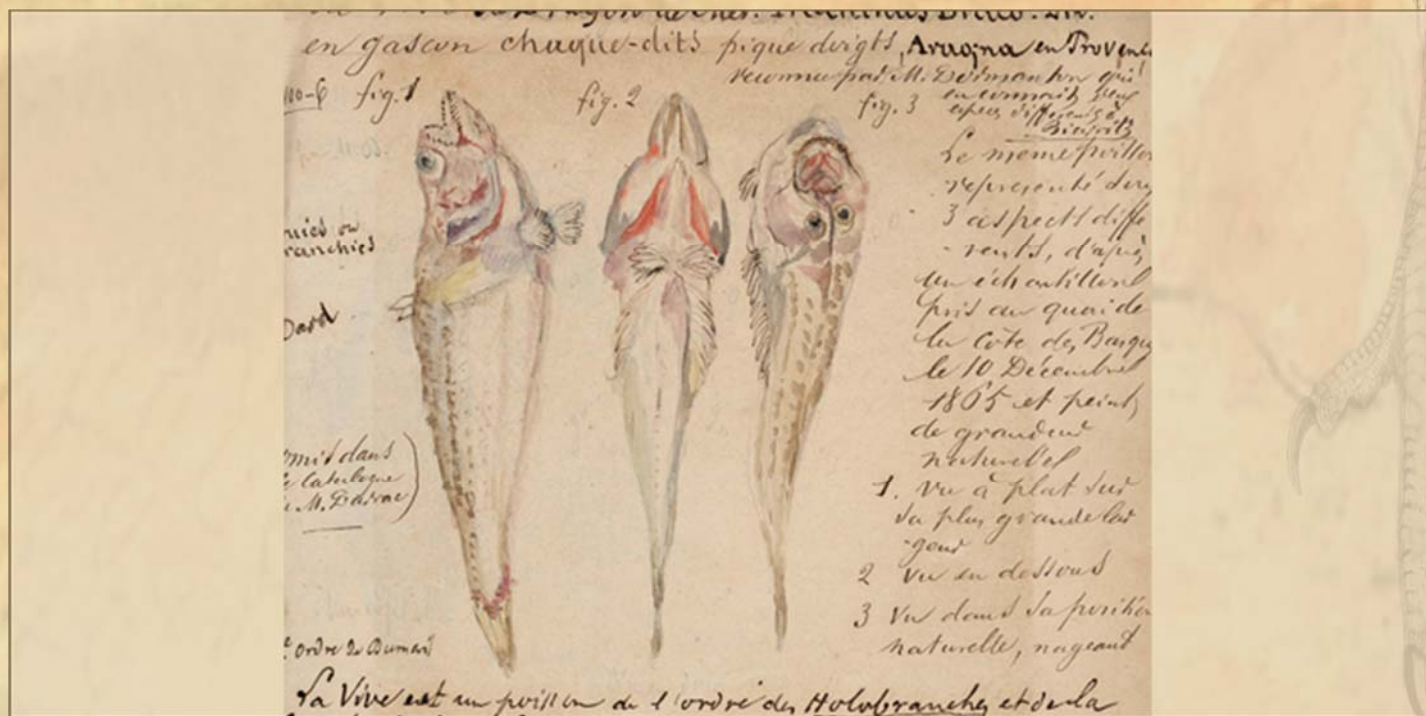 Dragon de mer. Trachinus Draco. Lin.
en gascon chaque-dits pique doigts, Aragna en Provence
reconnu par M. qui
en connait deux
especes differentes à
Biarritz
fig. 1
fig. 2
fig. 3
Le meme poisson
representé sous
3 aspects diffe
-rents, d'après
un échantillon
pris au quai de
la Côte des Basques
le 10 Décembre
1865 et peint
de grandeur
naturelle
1. Vu à plat sur
sa plus grande lar
-geur
2 Vu en dessous
3 Vu dans sa position
naturelle, nageant
ou
ranchies
Dard
omis dans
le Catalogue
de M.
ordre de Dumeril
La Vive est un poisson de l'ordre des Holobranches et de la